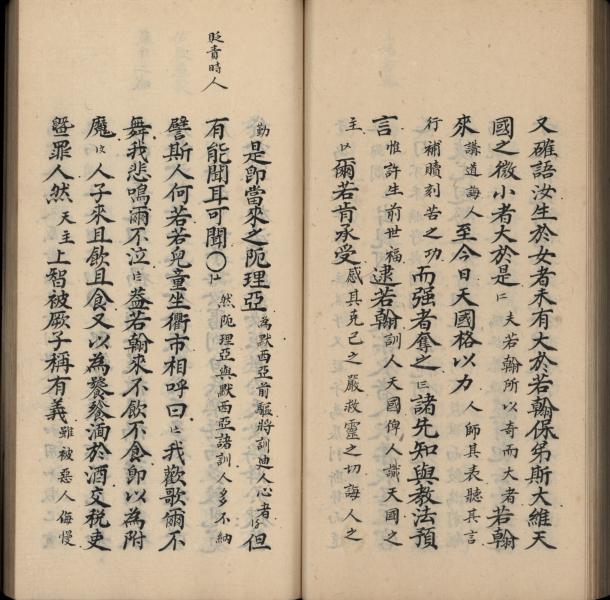 又確語汝生於女者未有大於若翰保弟斯大維天
國之微小者大於是二夫若翰所以奇而大者若翰
來講道誨人至今日天國格以力人師其表聽其言
行補贖刻苦之功而强者奪之三諸先知與教法預
言惟許生前世福逮若翰訓人天國俾人識天國之
主以爾若肯承受感其克己之嚴救靈之切誨人之
勤是即當來之阨理亞為默西亞前驅將訓迪人心者但
有能聞耳可聞〇然阨理亞與默西亞諸訓人多不納
貶責時人
譬斯人何若若兒童坐衢市相呼曰我歡歌爾不
舞我悲鳴爾不泣蓋若翰來不飲不食即以為附
魔人子來且飲且食又以為饕餮湎於酒交税吏
暨罪人然天主上智被厥子稱有義雖被惡人侮慢